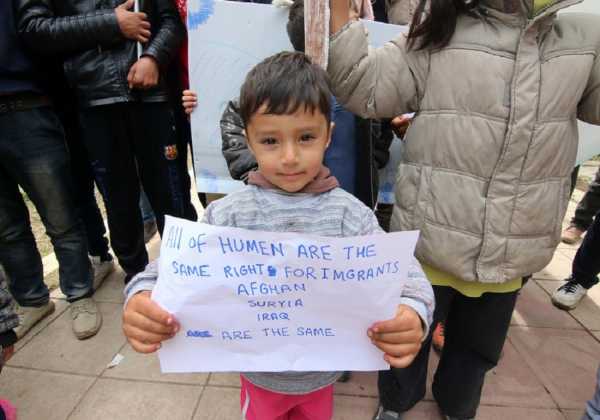 All OF HUMEN ARE THE
SAME RIGHT FOR IMGRANTS
AFGHAN
SURYIA
IRAQ
ARE ARE THE SAME